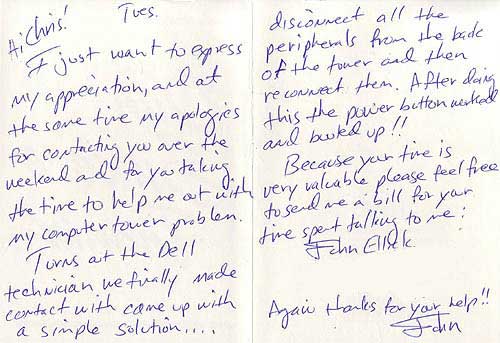 Tues.
Hi Chris!
I just want to express
my appreciation, and at
the same time my apologies
for contacting you over the
weekend and for you taking
the time to help me out with
my computer tower problem.
Turns out the Dell
technician we finally made
contact with came up with
a simple solution....
disconnect all the
peripherals from the back
of the tower and then
reconnect them. After doing
this the power button worked
and booted up!!
Because your time is
very valuable please feel free
to send me a bill for your
time spent talking to me!
John
Again thanks for your help!!
John